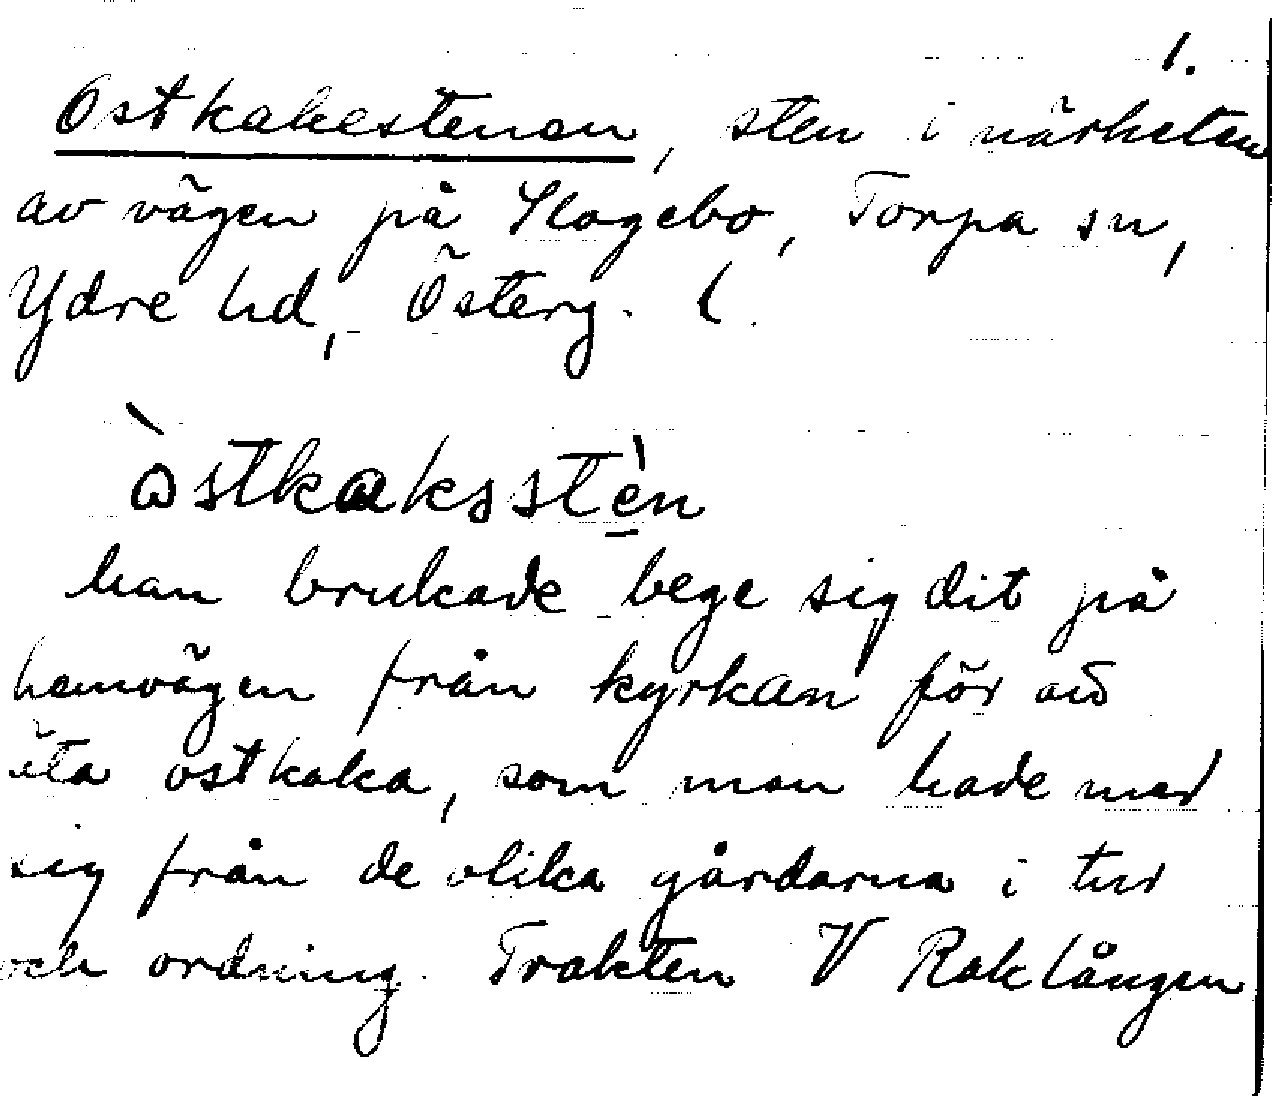 1.
Ostkakestenen, sten i närheten
av vägen på Skogebo, Torpa sn,
Ydre hd, Österg. (
òstkaksstèn
han brukade bege sig dit på
hemvägen från kyrkan för att
äta ostkaka, som man hade med
sig från de olika gårdarna i tur
och ordning. Trakten V Raklången